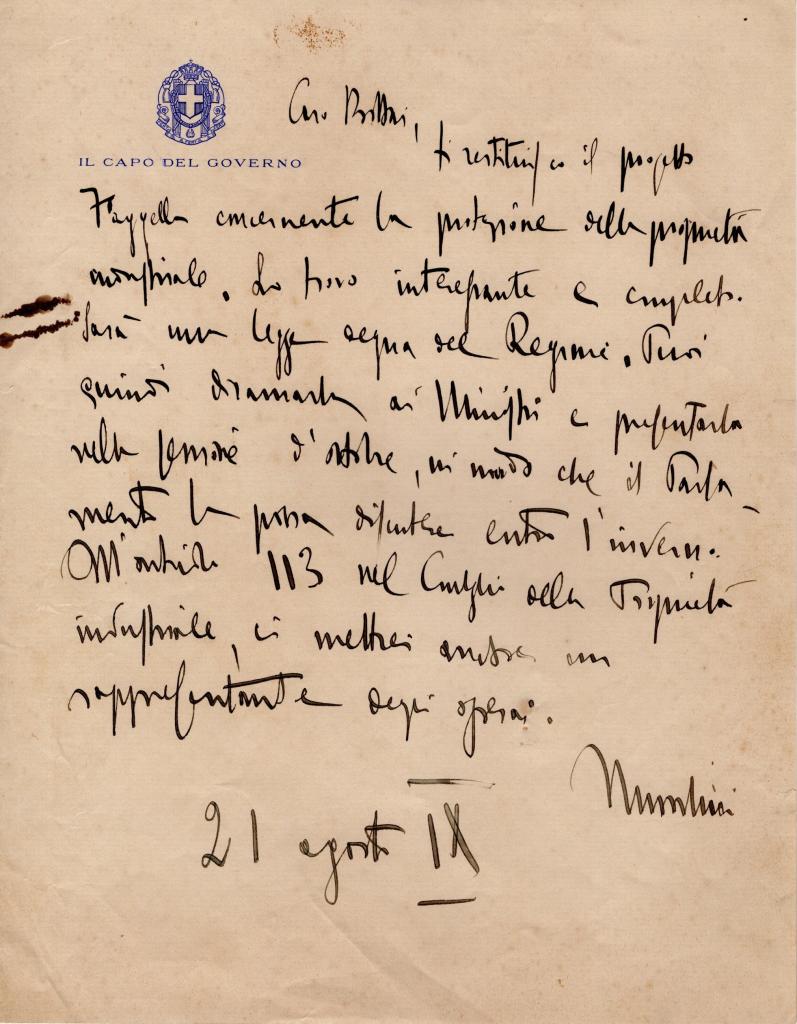 Caro Bottai,
IL CAPO DEL GOVERNO
ti restituisco il progetto
Faggella concernente la protezione della proprietà
industriale. Lo trovo interessante e completo.
Sarà una legge degna del Regime. Puoi
quindi diramarla ai Ministri e presentarla
nella sessione d'ottobre, in modo che il Parla-
mento la possa discutere entro l'inverno.
All'articolo 113 nel Consiglio della Proprietà
industriale, ci metterei anche un
rappresentante degli operai.
Mussolini
21 agosto IX